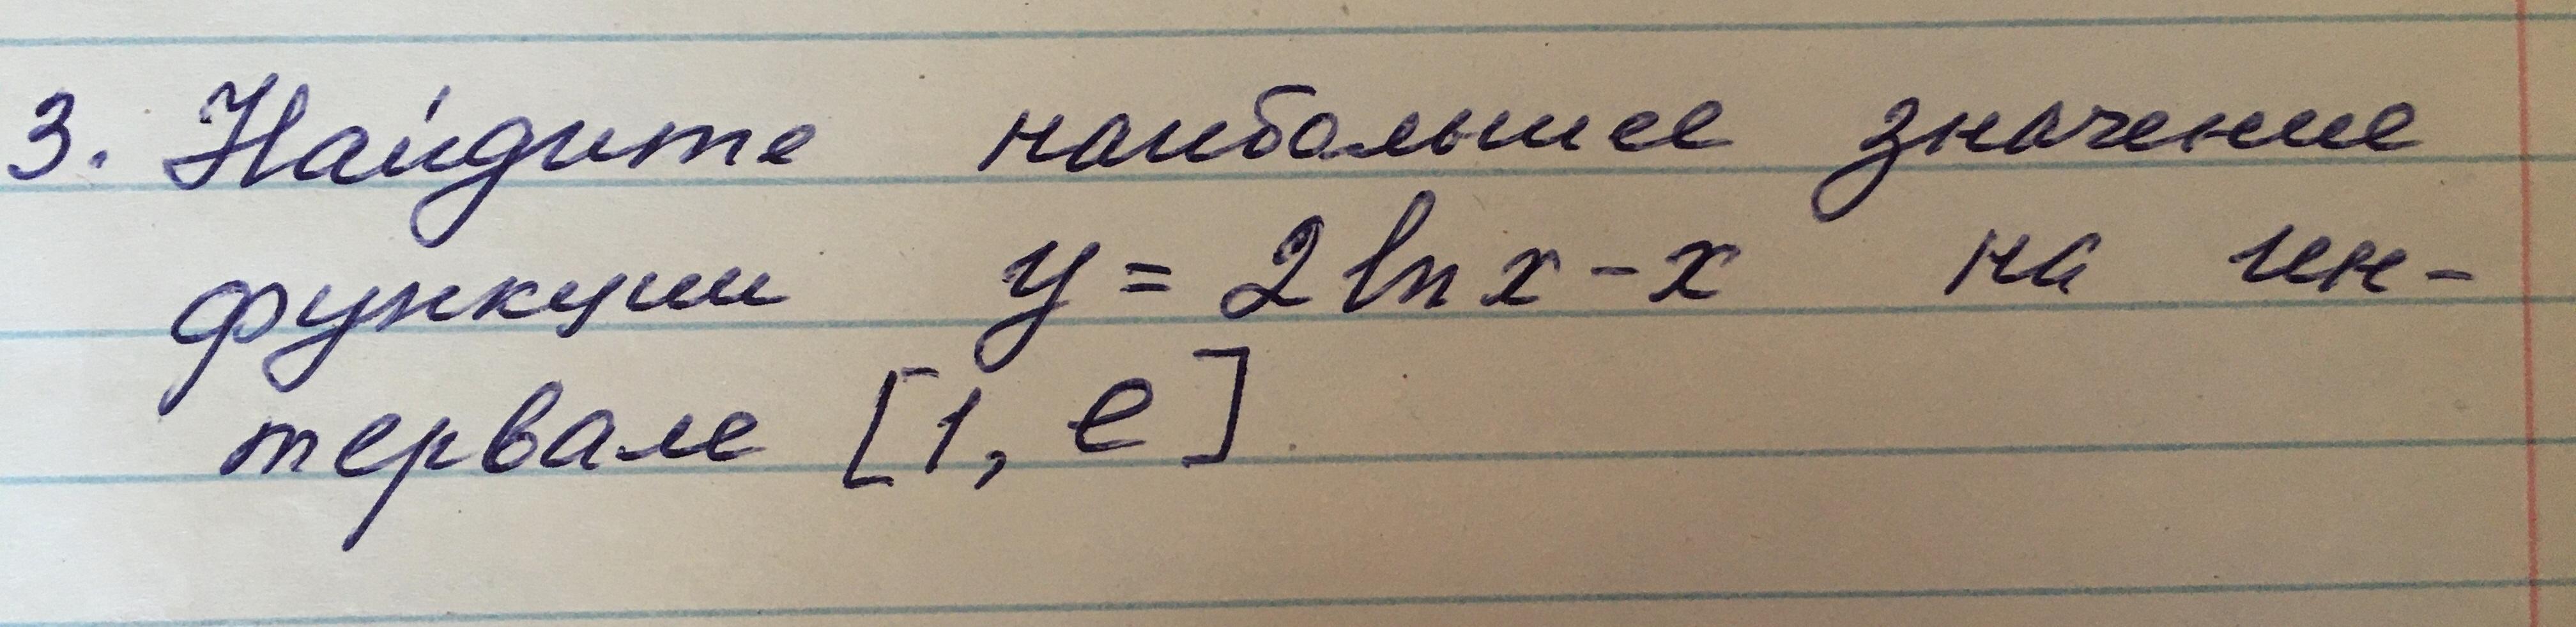 3. Найдите наибольшее значение
функции y = 2 ln x - x на ин-
тервале [1, e]